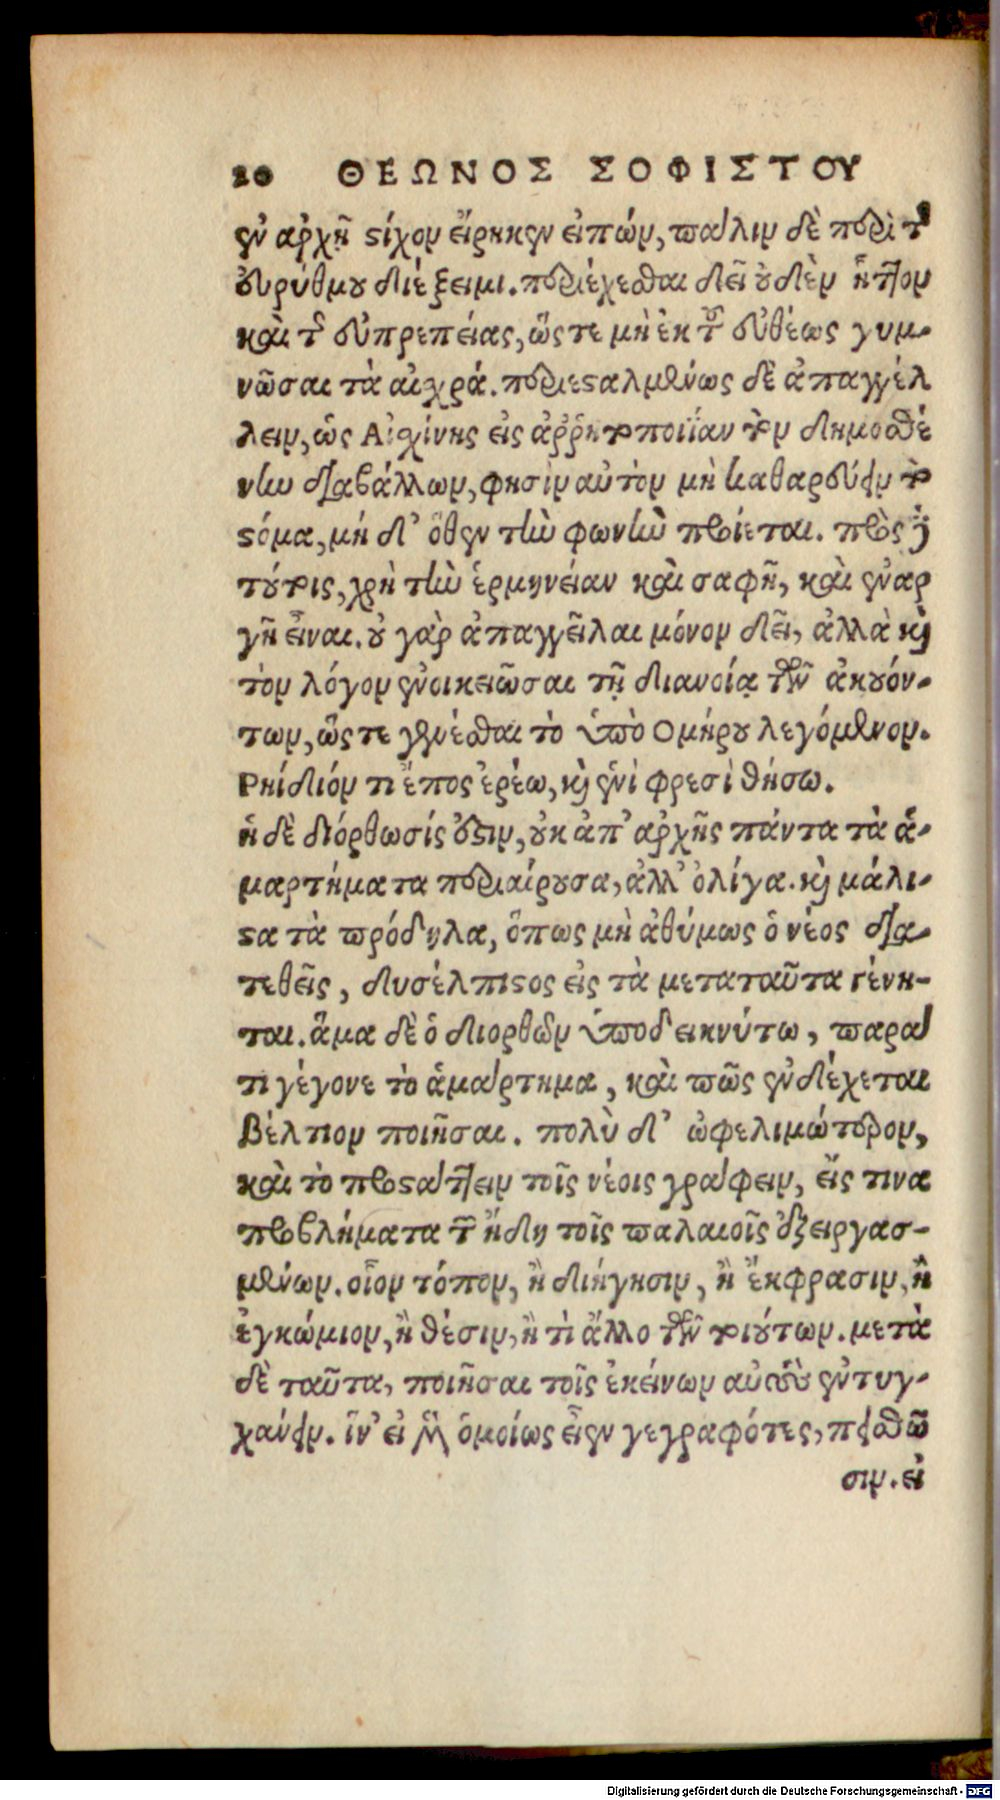 20 ΘΕΩΝΟΣ ΣΟΦΙΣΤΟΥ
ἐν ἀρχῇ στίχον εἴρηκεν εἰπών, πάλιν δὲ περὶ τοῦ
εὐρύθμου διέξειμι. περιέχεσθαι δεῖ οὐδὲν ἧττον
καὶ τῆς εὐπρεπείας, ὥστε μὴ ἐκ τοῦ εὐθέως γυμ-
νῶσαι τὰ αἰχρά. περιεσταλμένως δὲ ἀπαγγέλ
λειν, ὡς Αἰσχίνης εἰς ἀῤῥητοποιΐαν τὸν Δημοσθέ
νην διαβάλλων, φησὶν αὐτὸν μὴ καθαρεύειν τὸ
στόμα, μήδ' ὅθεν τὴν φωνὴν προΐεται. πρὸς δὲ
τούτοις, χρὴ τὴν ἑρμηνείαν καὶ σαφῆ, καὶ ἐναρ
γῆ εἶναι. οὐ γὰρ ἀπαγγεῖλαι μόνον δεῖ, ἀλλὰ καὶ
τὸν λόγον ἐνοικειῶσαι τῇ διανοίᾳ τῶν ἀκουόν-
των, ὥστε γενέσθαι τὸ ὑπὸ Ομήρου λεγόμενον.
Ρηίδιόν τι ἔπος ἐρέω, καὶ ἐνὶ φρεσὶ θήσω.
ἡ δὲ διόρθωσίς ἐστιν, οὐκ ἀπ' ἀρχῆς πάντα τὰ ἁ-
μαρτήματα περιαίρουσα, ἀλλ' ὀλίγα. καὶ μάλι-
στα τὰ πρόδηλα, ὅπως μὴ ἀθύμως ὁ νέος δια-
τεθεῖς, δυσέλπιστος εἰς τὰ μεταταῦτα γένη-
ται. ἅμα δὲ ὁ διορθῶν ὑποδεικνύτω, παρὰ
τι γέγονε τὸ ἁμάρτημα, καὶ πῶς ἐνδέχεται
βέλτιον ποιῆσαι. πολὺ δ' ὠφελιμώτερον,
καὶ τὸ προστάττειν τοῖς νέοις γράφειν, εἴς τινα
προβλήματα τῶν ἤδη τοῖς παλαιοῖς ἐξειργασ-
μένων. οἷον τόπον, ἢ διήγησιν, ἢ ἔκφρασιν, ἢ
ἐγκώμιον, ἢ θέσιν, ἢ τὶ ἄλλο τῶν τοιούτων. μετὰ
δὲ ταῦτα, ποιῆσαι τοῖς ἐκείνων αὐτοὺς ἐντυγ-
χάνειν. ἵν' εἰ μὲν ὁμοίως εἶεν γεγραφότες, πεισθῶ
σιν. εἰ
Digitalisierung gefördert durch die Deutsche Forschungsgemeinschaft - DFG